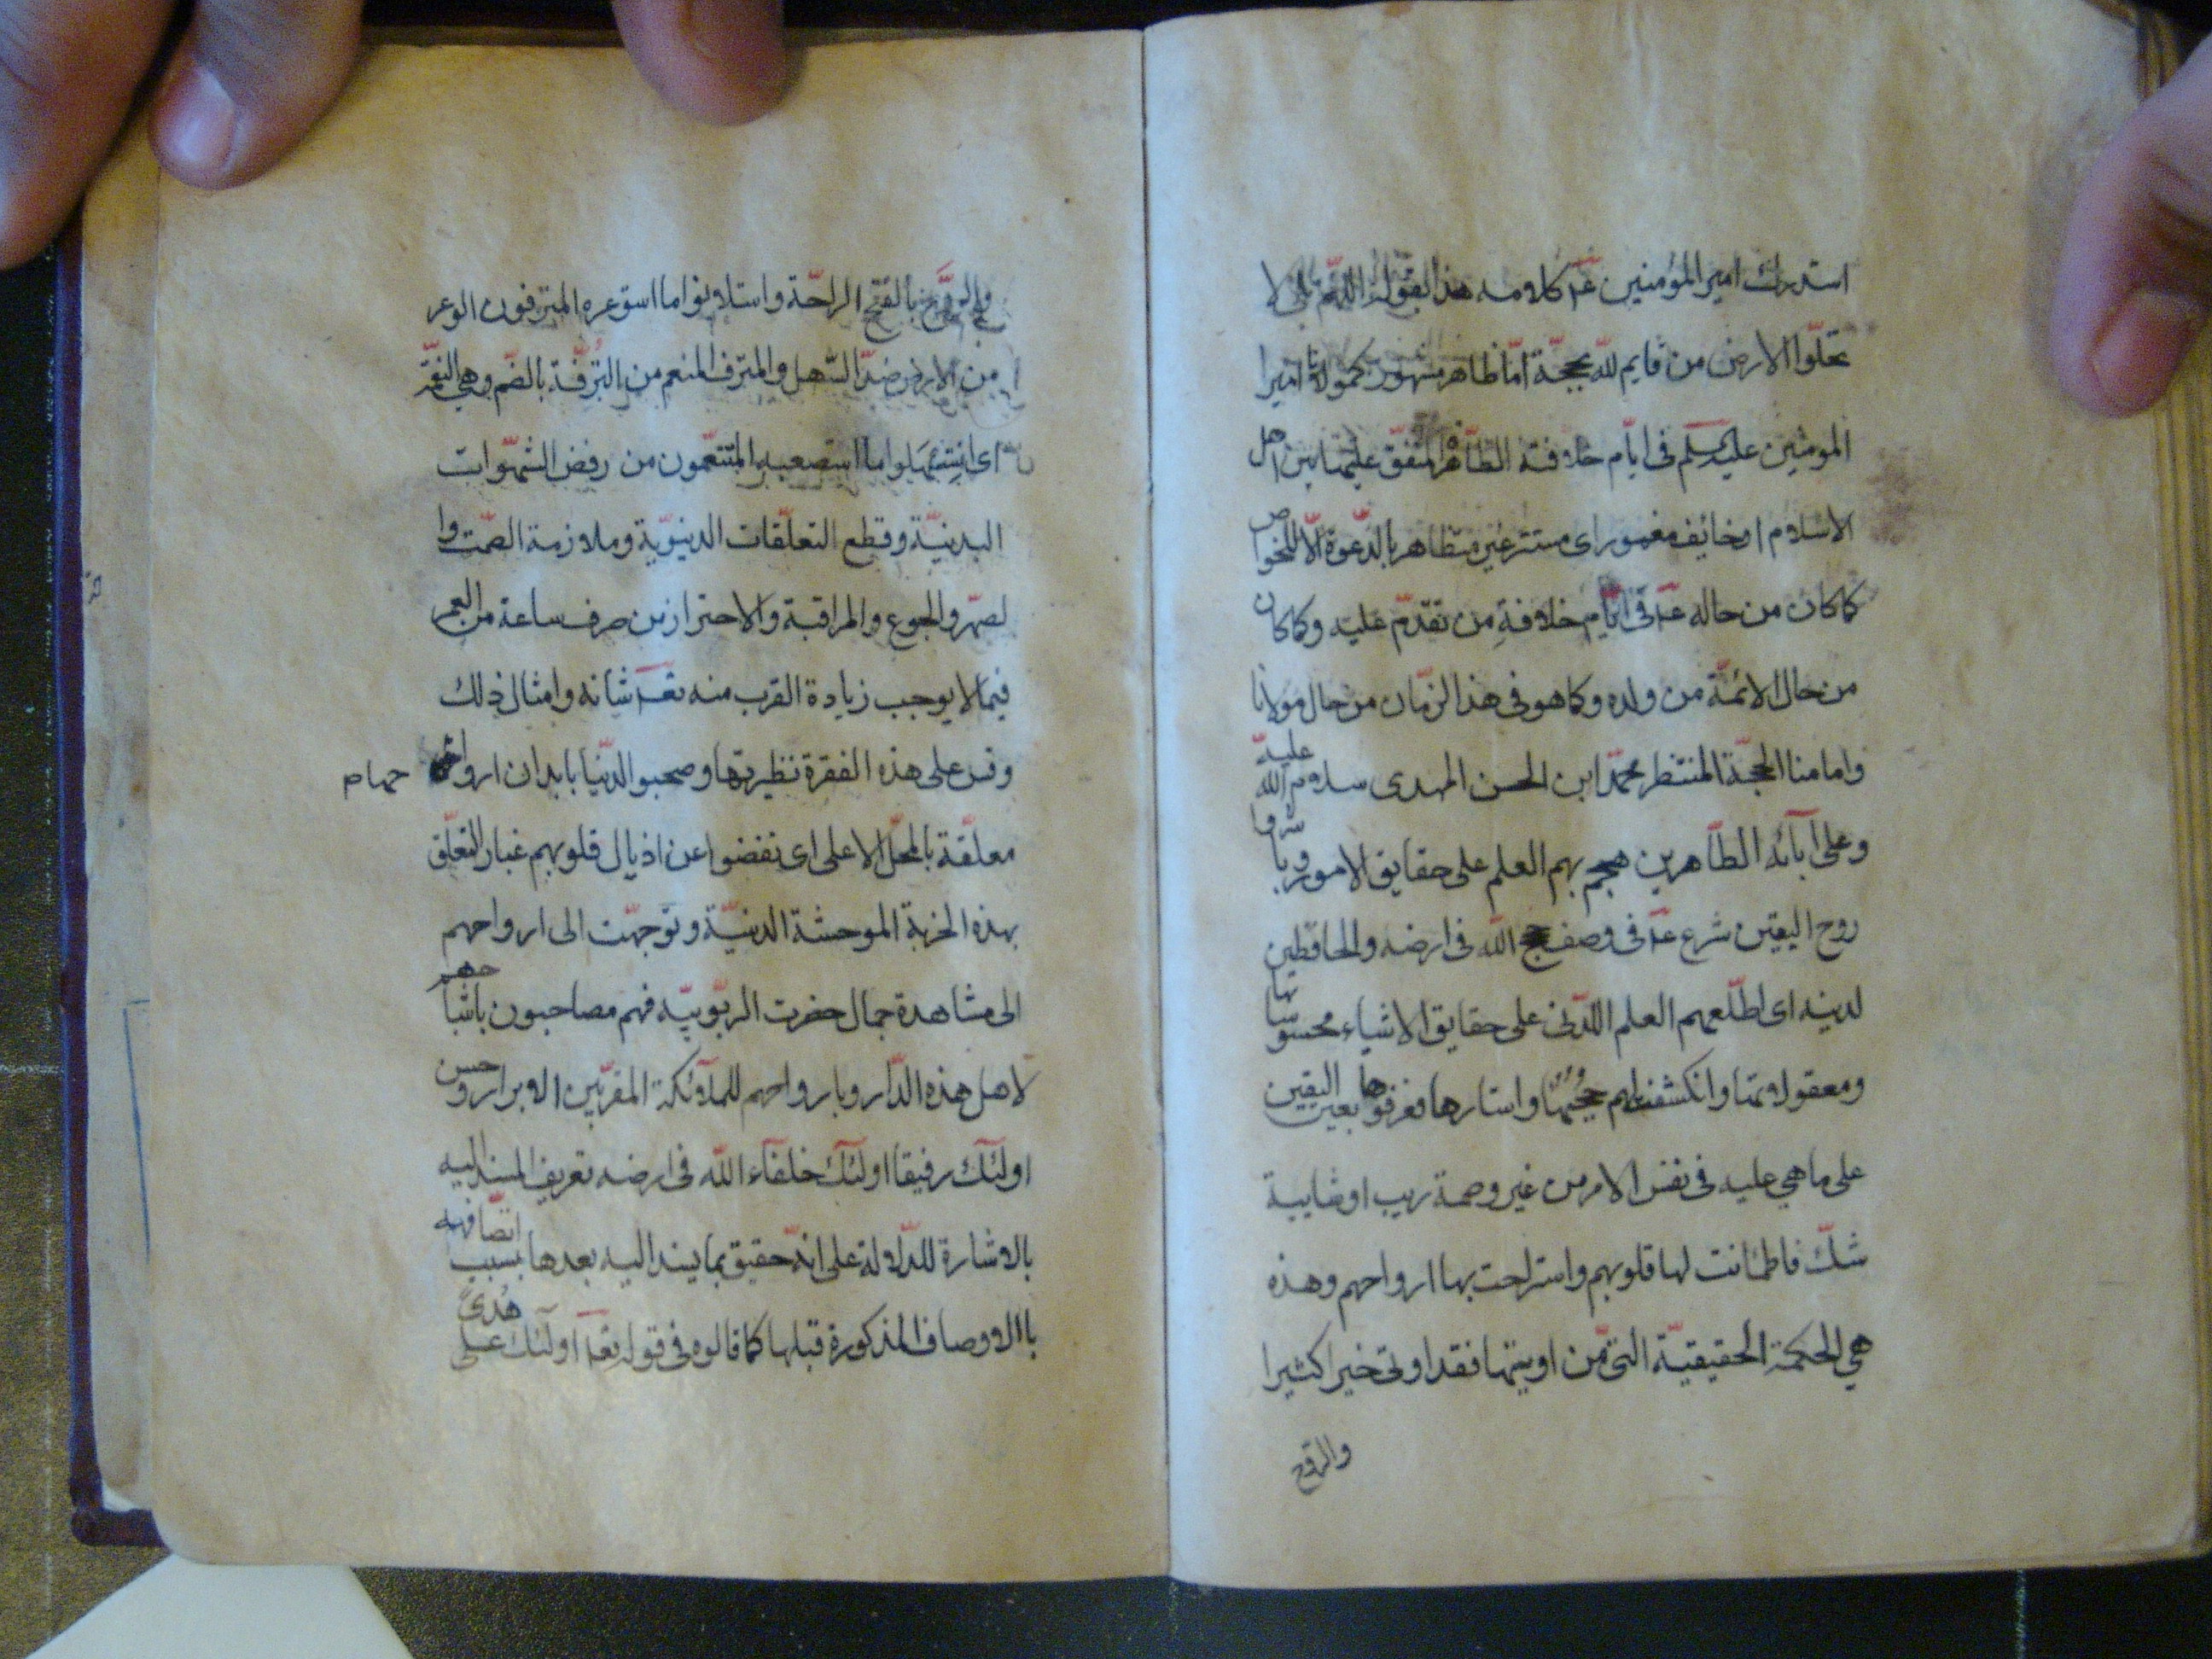 استدرك امير المؤمنين عم كلامه هذا بقوله اللهم بلى لا
تخلوا الارض من قايم لله بحجة اما ظاهر مشهور كمولانا امير
المومنين عليه السلم فى ايام خلافته الظاهرة المتفق عليها بين اهل
الاسلام او خائف مغمور اى مستتر غير متظاهر بالدعوة الا للخواص
كما كان من حاله عم فى ايام خلافة من تقدم عليه وكما كان
من حال الائمة من ولده وكما هو فى هذا الزمان من حال مولانا
وامامنا الحجة المنتظر محمد ابن الحسن المهدى سلام الله عليه
وعلى آبائه الطاهرين هجم بهم العلم على حقايق الامور وباشروا
روح اليقين شرع عم فى وصف حجج الله فى ارضه والحافظين
لدينه اى اطلعهم العلم اللدنى على حقايق الاشياء محسوساتها
ومعقولاتها وانكشفت لهم حجبها واستارها فعرفوها بعين اليقين
على ما هي عليه فى نفس الامر من غير وصمة ريب او شايبة
شك فاطمانت لها قلوبهم واستراحت بها ارواحهم وهذه
هي الحكمة الحقيقية التى من اوتيتها فقد اوتى خيرا كثيرا
والروح
والروح بالفتح الراحة واستلانوا ما استوعره المترفون الوعر
من الارض ضد السهل والمترف المنعم من الترفة بالضم وهي النعمة
اى استسهلوا ما استصعبه المتنعمون من رفض الشهوات
البدنية وقطع التعلقات الدنيوية وملازمة الصمت وا
لصهر والجوع والمراقبة والاحتراز من صرف ساعة من العمر
فيما لا يوجب زيادة القرب منه تعـ شانه وامثال ذلك
وقس على هذه الفقرة نظيرتها وصحبوا الدنيا بابدان ارواحها
معلقة بالمحل الاعلى اى نفضوا عن اذيال قلوبهم غبار التعلق
بهذه الخربة الموحشة الدنية وتوجهت الى ارواحهم
الى مشاهدة جمال حضرت الربوبيه فهم مصاحبون باشباحهم
لاهل هذه الدار وبارواحهم للملآئكة المقربين الابرار وحسن
اولئك رفيقا اولئك خلفآء الله فى ارضه تعريف المسند اليه
بالاشارة للدلالة على انه حقيق بما يسند اليه بعدها بسبب اتصافه
باالاوصاف المذكورة قبلها كما قالوه فى قوله تعـ اولئك على هدى